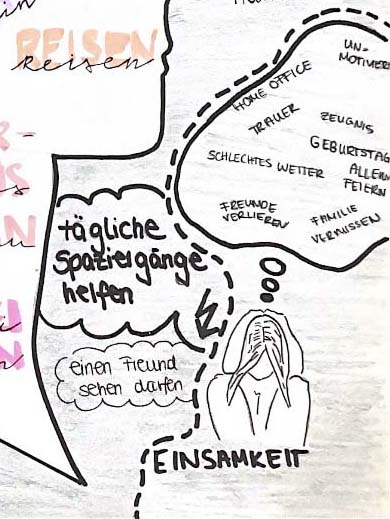 REISEN
reisen
HOME OFFICE
UN-
TRAUER
ZEUGNIS
GEBURTSTAG
SCHLECHTES WETTER
ALLEIN
FEIERN
FREUNDE
VERLIEREN
FAMILIE
VERMISSEN
tägliche
Spaziergänge
helfen
einen Freund
sehen dürfen
EINSAMKEIT